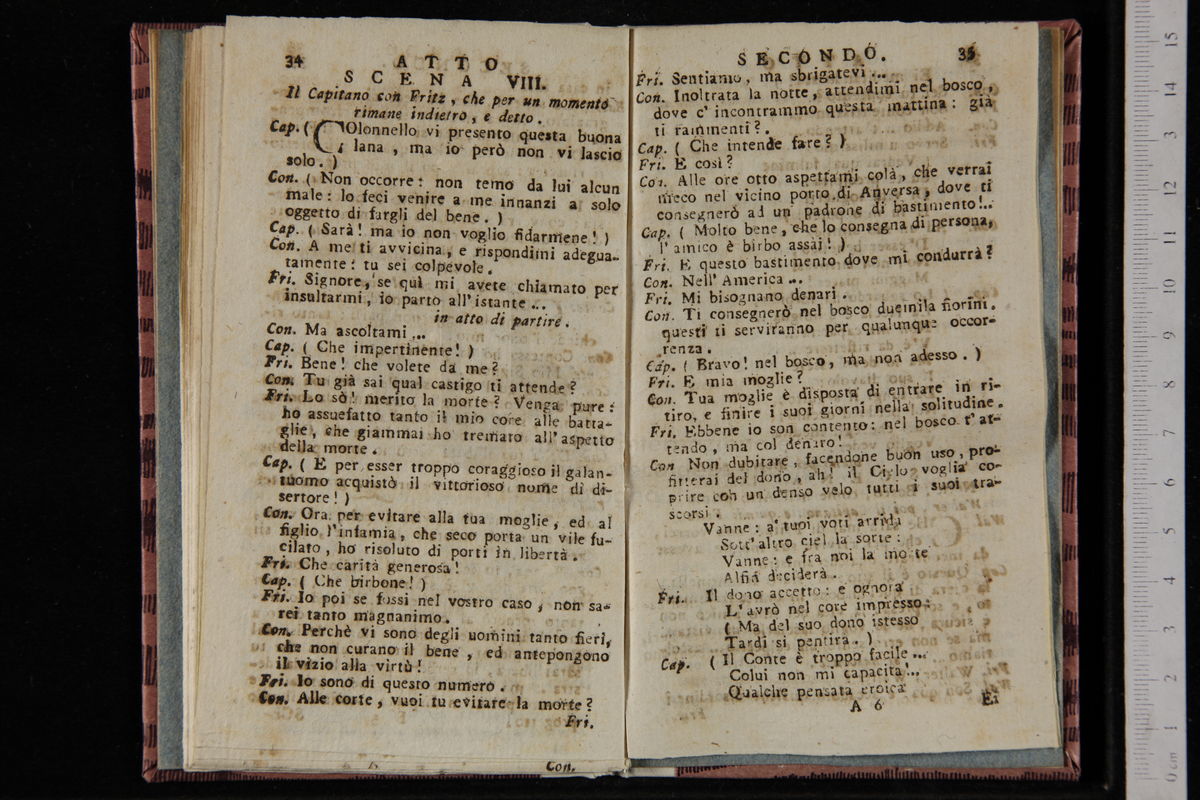 34 ATTO
SCENA VIII.
Il Capitano con Fritz, che per un momento
rimane indietro, e detto.
Cap. ( COlonnello vi presento questa buona
lana, ma io però non vi lascio
solo. )
Con. ( Non occorre: non temo da lui alcun
male: lo feci venire a me innanzi a solo
oggetto di fargli del bene. )
Cap. ( Sarà! ma io non voglio fidarmene! )
Con. A me ti avvicina, e rispondimi adegua-
tamente: tu sei colpevole.
Fri. Signore, se quì mi avete chiamato per
insultarmi, io parto all'istante ...
in atto di partire.
Con. Ma ascoltami ...
Cap. ( Che impertinente! )
Fri. Bene! che volete da me?
Con. Tu già sai qual castigo ti attende?
Fri. Lo sò! merito la morte? Venga pure:
ho assuefatto tanto il mio core alle batta-
glie, che giammai ho tremato all'aspetto
della morte.
Cap. ( E per esser troppo coraggioso il galan-
tuomo acquistò il vittorioso nome di di-
sertore! )
Con. Ora per evitare alla tua moglie, ed al
figlio l'infamia, che seco porta un vile fu-
cilato, ho risoluto di porti in libertà.
Fri. Che carità generosa!
Cap. ( Che birbone! )
Fri. Io poi se fossi nel vostro caso, non sa-
rei tanto magnanimo.
Con. Perchè vi sono degli uomini tanto fieri,
che non curano il bene, ed antepongono
il vizio alla virtù!
Fri. Io sono di questo numero.
Con. Alle corte, vuoi tu evitare la morte?
Fri.
Con.
SECONDO. 35
Fri. Sentiamo, ma sbrigatevi ...
Con. Inoltrata la notte, attendimi nel bosco,
dove c' incontrammo questa mattina: già
ti rammenti?.
Cap. ( Che intende fare? )
Fri. E così?
Con. Alle ore otto aspettami colà, che verrai
meco nel vicino porto di Anversa, dove ti
consegnerò ad un padrone di bastimento!..
Cap. ( Molto bene, che lo consegna di persona,
l'amico è birbo assai! )
Fri. E questo bastimento dove mi condurrà?
Con. Nell'America ...
Fri. Mi bisognano denari.
Con. Ti consegnerò nel bosco duemila fiorini.
questi ti serviranno per qualunque occor-
renza.
Cap. ( Bravo! nel bosco, ma non adesso. )
Fri. E mia moglie?
Con. Tua moglie è disposta di entrare in ri-
tiro, e finire i suoi giorni nella solitudine.
Fri. Ebbene io son contento: nel bosco t'at-
tendo, ma col denaro!
Con Non dubitare, facendone buon uso, pro-
fitterai del dono, ah! il Cielo voglia co-
prire con un denso velo tutti i suoi tra-
scorsi.
Vanne: a' tuoi voti arrida
Sott'altro ciel la sorte:
Vanne: e fra noi la morte
Alfin deciderà.
Fri. Il dono accetto: e ognora
L'avrò nel core impresso:
( Ma del suo dono istesso
Tardi si pentirà. )
Cap. ( Il Conte è troppo facile ...
Colui non mi capacita!..
Qualche pensata eroica
A 6 Ei